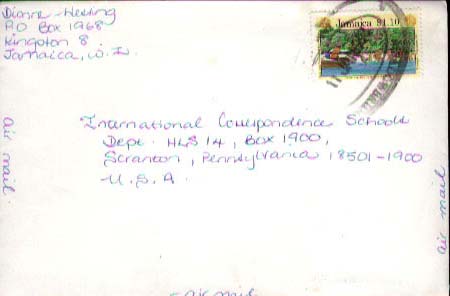 Dianne
P.O Box 1968
Kingston 8
Jamaica, W.I.
Jamaica $1.10
International Correspondence Schools
Dept. HLS14, Box 1900,
Scranton, Pennsylvania 18501-1900
U.S.A.
air mail
air mail
- air mail